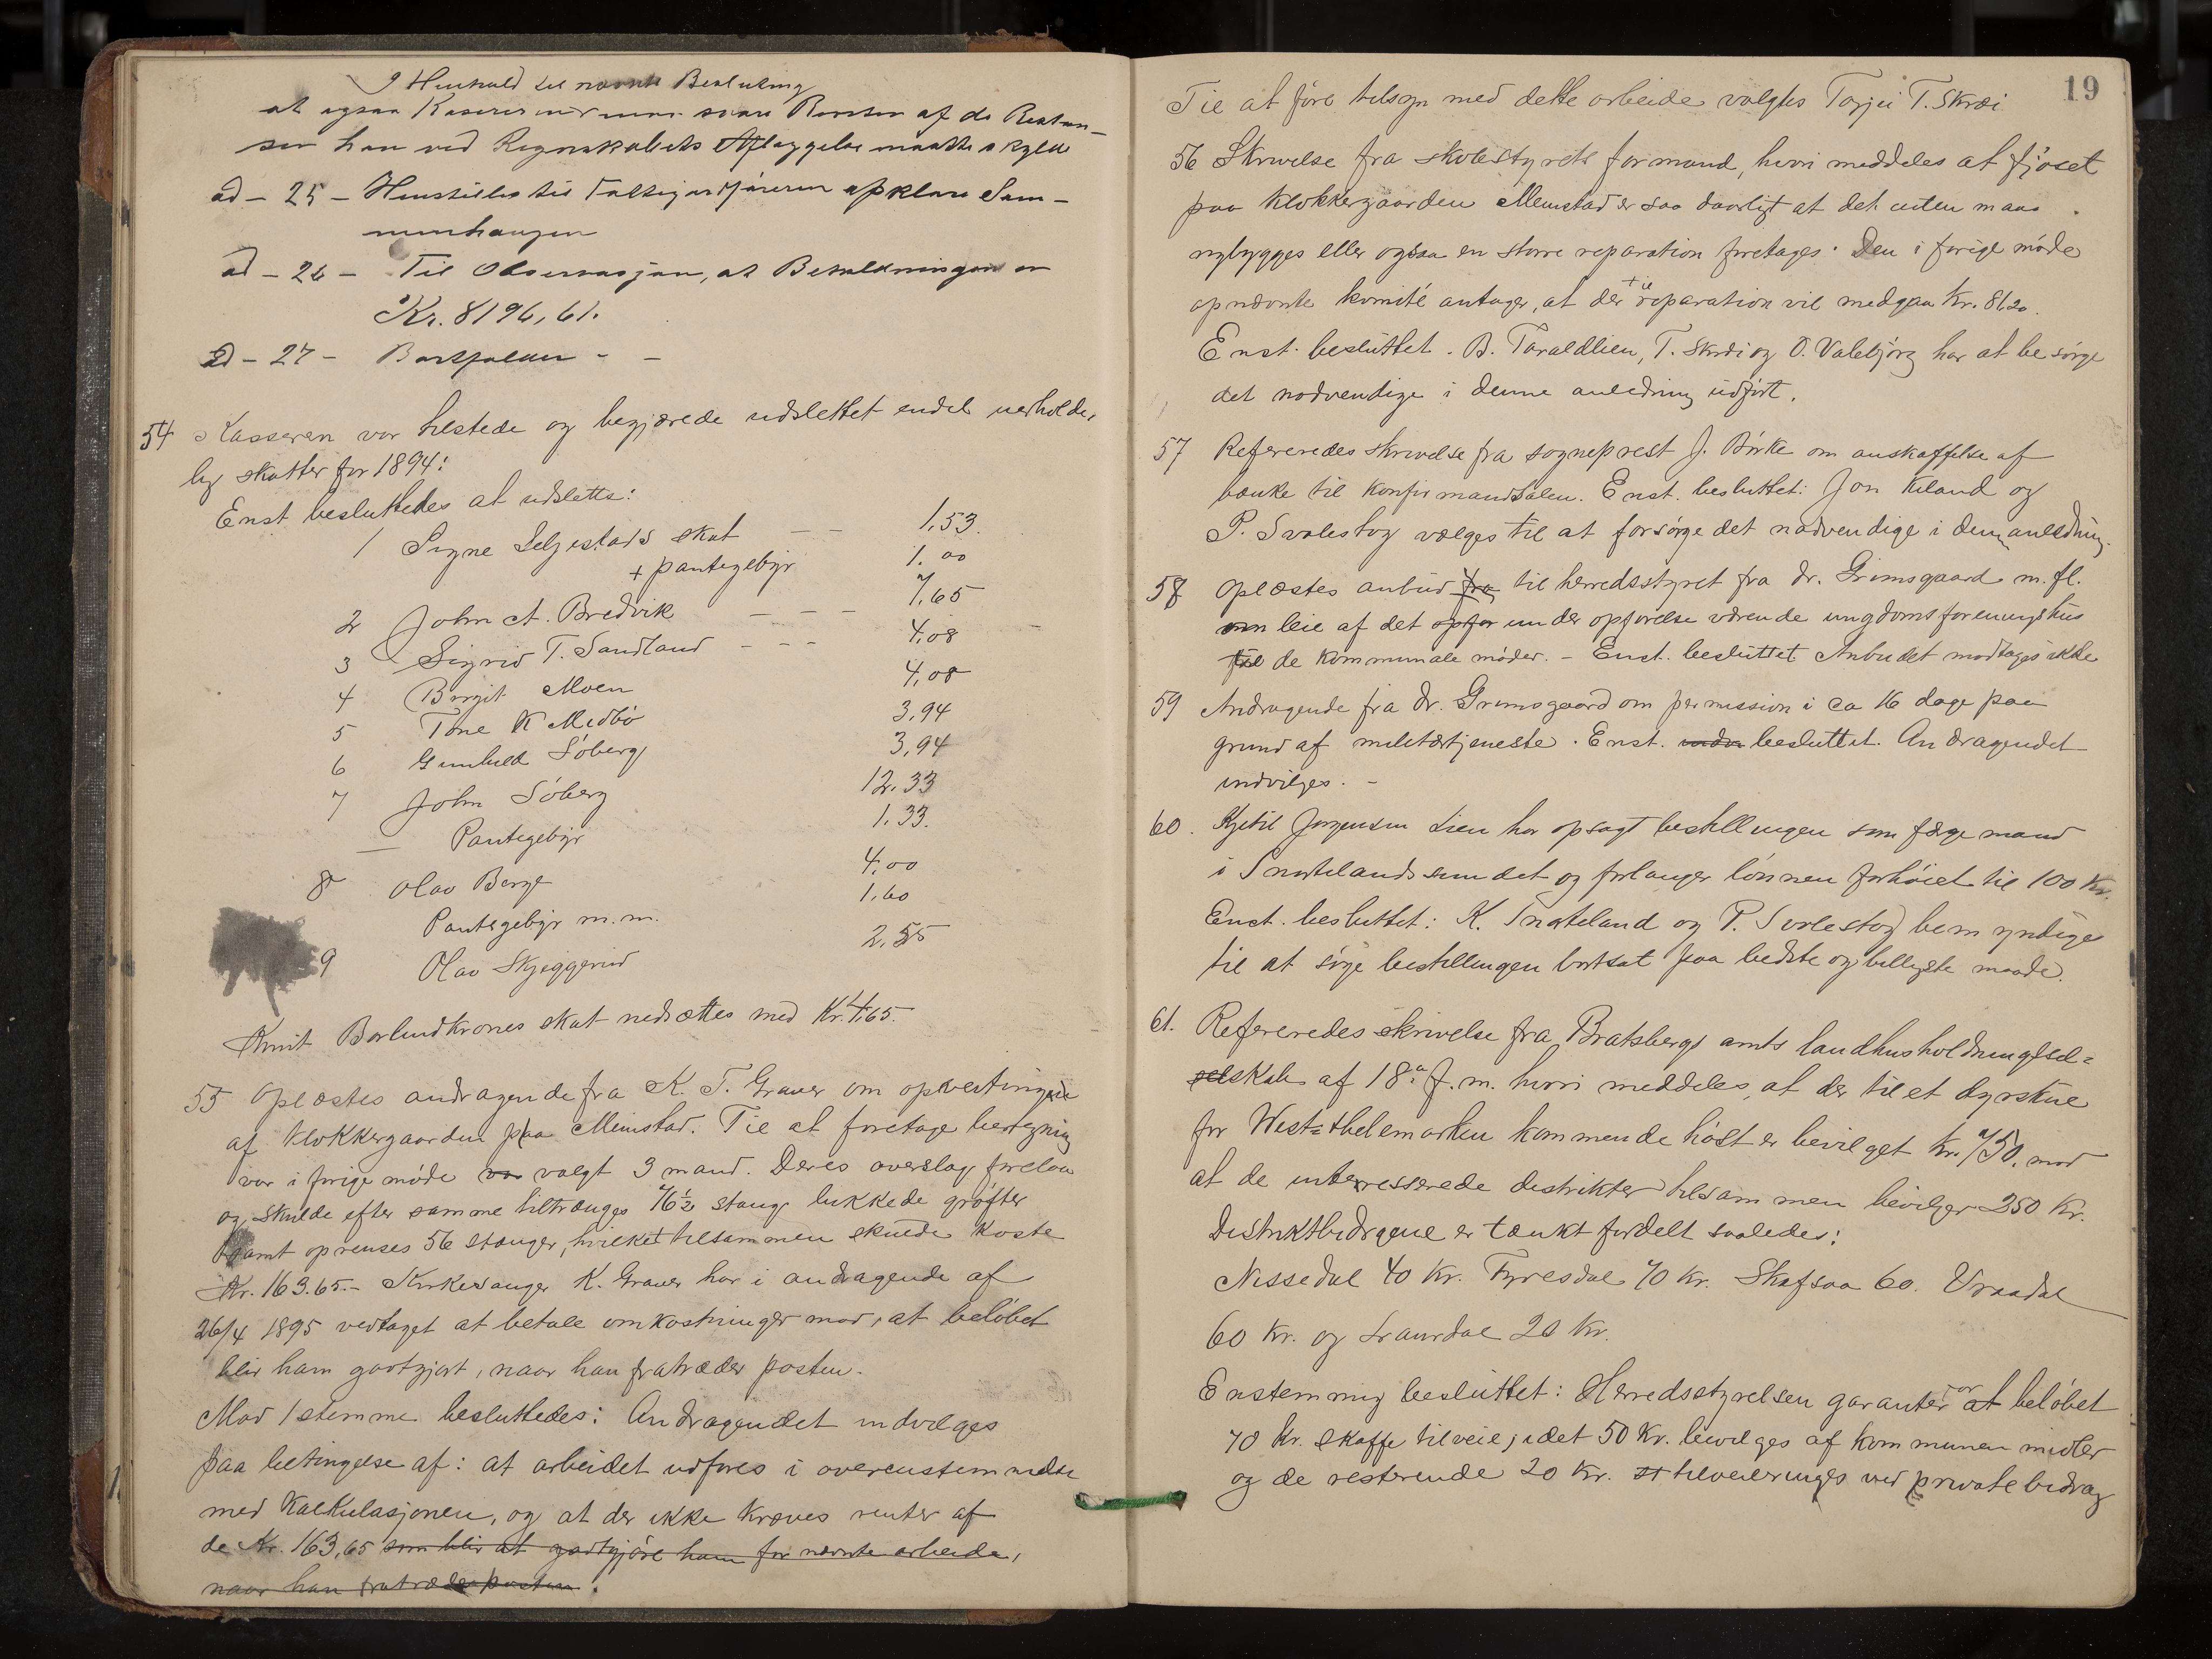 I Henhold til nævnte Beslutning
at ogsaa Kasereren maa svare Renter af de Restan-
ser han ved Regnskabets Aflæggelse maatte skylde
ad - 25 - Henstilles til Fattigordføreren opklare Sam-
menhængen
ad - 26 - Til Observasjon, at Beholdningen er
Kr. 8196,61.
ad - 27 - Bortfalder - -
54 Kasseren var tilstede og begjærede udslettet endel uerholde-
lig skatter for 1894:
Enst. besluttedes at udslette:
1 Signe Seljestads skat - - 1,53.
+ pantegebyr 1.00
2 John A. Bredvik - - - 7,65
3 Sigrid T. Sandland - - - 4,08
4 Birgit Moen 4,08
5 Tone K Midbö 3,94
6 Gunhild Söberg 3,94
7 John Söberg 12.33
— Pantegebyr 1.33.
8 Olav Berge 4,00
Pantegebyr m.m. 1,60
9 Olav Skjeggerud 2,55
Knut Borlundkrones skat nedsættes med Kr. 4,65.
55 Oplæstes andragende fra K. T. Graver om opkostningen
af Klokkergaarden paa Meinstad. Til at foretage beregning
var i forige möde var valgt 3 mand. Deres overslag forelaa
og skulde efter samme tiltrænges 76½ stang lukkede gröfter
samt oprenses 56 stænger, hvilket tilsammen skulde koste
Kr. 163.65.- Kirkesanger K. Graver har i andragende af
26/4 1895 vedtaget at betale omkostninger mod, at belöbet
blir ham godtgjort, naar han fratræder posten.
Mod 1 stemme besluttedes: Andragendet indvilges
paa betingelse af: at arbeidet udföres i overenstemmelse
med Kalkulasjonen, og at der ikke kræves renter af
de Kr. 163,65 som blir at godtgjöre ham for nævnte arbeide,
naar han fratræder posten.
19
Til at före tilsyn med dette arbeide valgtes Torjei T. Skræi
56 Skrivelse fra skolestyrets formand, hvori meddeles at fjöset
paa Klokkergaarden Meinstad er saa daarligt at det enten maa
nybygges eller ogsaa en större reparation foretages. Den i forige möde
opnævnte komité antager, at der til reparation vil medgaa Kr. 81,20.
Enst. besluttet. B. Taraldlien, T. Skræi og O. Valebjörg har at besörge
det nödvendige i denne anledning udfört.
57 Refereredes skrivelse fra sogneprest J. Birke om anskaffelse af
bænke til Konfirmandsalen. Enst. besluttet: Jon Kiland og
P. Svalestog vælges til at forsörge det nödvendige i denne anledning.
58 Oplæstes anbud fra til herredsstyret fra dr. Grimsgaard m. fl.
om leie af det opfør under opförelse værende ungdomsforeningshus
til de kommunale möder. - Enst. besluttet Anbudet modtages ikke
59 Andragende fra dr. Grimsgaard om permission i ca 16 dage paa
grund af militærtjeneste. Enst. besluttet. Andragendet
indvilges. -
60. Kjetil Jorgensen Lien har opsagt bestillingen som færgemand
i Snartelandssundet og forlanger lönnen forhöiet til 100 Kr.
Enst. besluttet: K. Snarteland og P. Svalestog bemyndiges
til at söge bestillingen bortsat paa bedste og billigste maade.
61. Refereredes skrivelse fra Bratsbergs amts landhusholdningssel-
selskab af 18de f. m. hvori meddeles, at der til et dyrskue
for West-thelemarken kommende höst er bevilget Kr. 750, mod
at de interresserede distrikter tilsammen bevilger 250 Kr.
Distriktbidragene er tænkt fordelt saaledes:
Nissedal 40 Kr. Fyresdal 70 Kr. Skafsaa 60. Vraadal
60 Kr. og Laurdal 20 Kr.
Enstemmig besluttet: Herredsstyrelsen garanterer at belöbet
70 Kr. skaffe tilveie, idet 50 Kr. bevilges af kommunen midler
og de resterende 20 Kr. tilveiebringes ved private bidrag